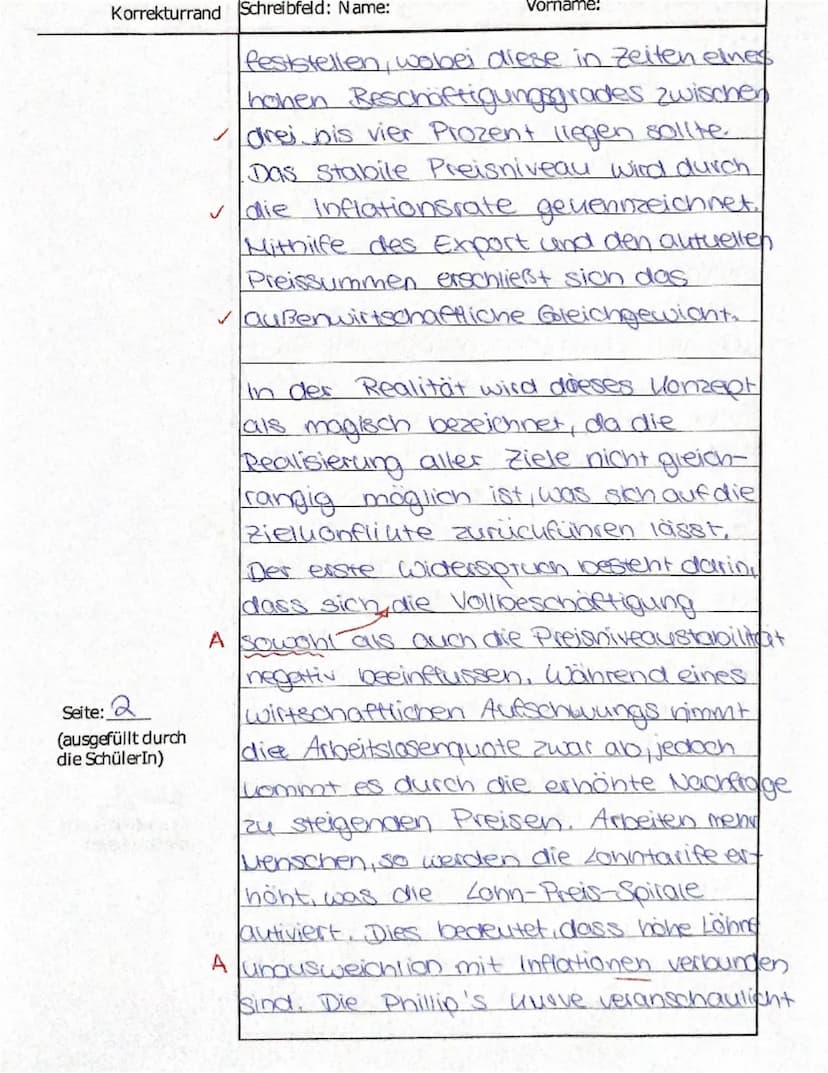 Korrekturrand
Schreibfeld: Name:
Vorname:
feststellen, wobei diese in Zeiten eines
hohen Beschäftigungsgrades zwischen
✓ drei bis vier Prozent liegen sollte.
Das stabile Preisniveau wird durch
✓ die Inflationsrate gekennzeichnet.
Mithilfe des Export und den aktuellen
Preissummen erschließt sich das
✓ außenwirtschaftliche Gleichgewicht.
In der Realität wird dieses Konzept
als magisch bezeichnet, da die
Realisierung aller Ziele nicht gleich-
rangig möglich ist, was sich auf die
Zielkonflikte zurückführen lässt.
Der erste Widerspruch besteht darin,
dass sich die Vollbeschäftigung
A sowohl als auch die Preisniveaustabilität
negativ beeinflussen. Während eines
wirtschaftlichen Aufschwungs nimmt
die Arbeitslosenquote zwar ab, jedoch
kommt es durch die erhöhte Nachfrage
zu steigenden Preisen. Arbeiten mehr
Menschen, so werden die Lohntarife er-
höht, was die Lohn-Preis-Spirale
aktiviert. Dies bedeutet, dass hohe Löhne
A unausweichlich mit Inflationen verbunden
sind. Die Phillip's Kurve veranschaulicht
Seite: 2
(ausgefüllt durch
die SchülerIn)